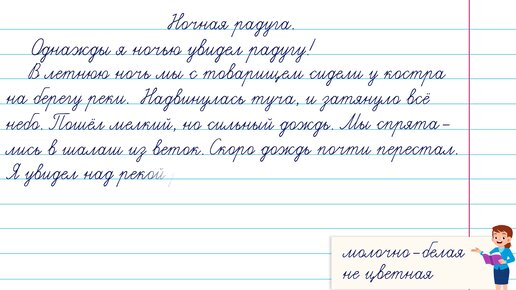 Ночная радуга.
Однажды я ночью увидел радугу!
В летнюю ночь мы с товарищем сидели у костра
на берегу реки. Надвинулась туча, и затянуло всё
небо. Пошёл мелкий, но сильный дождь. Мы спрята-
лись в шалаш из веток. Скоро дождь почти перестал.
Я увидел над рекой
молочно-белая
не цветная